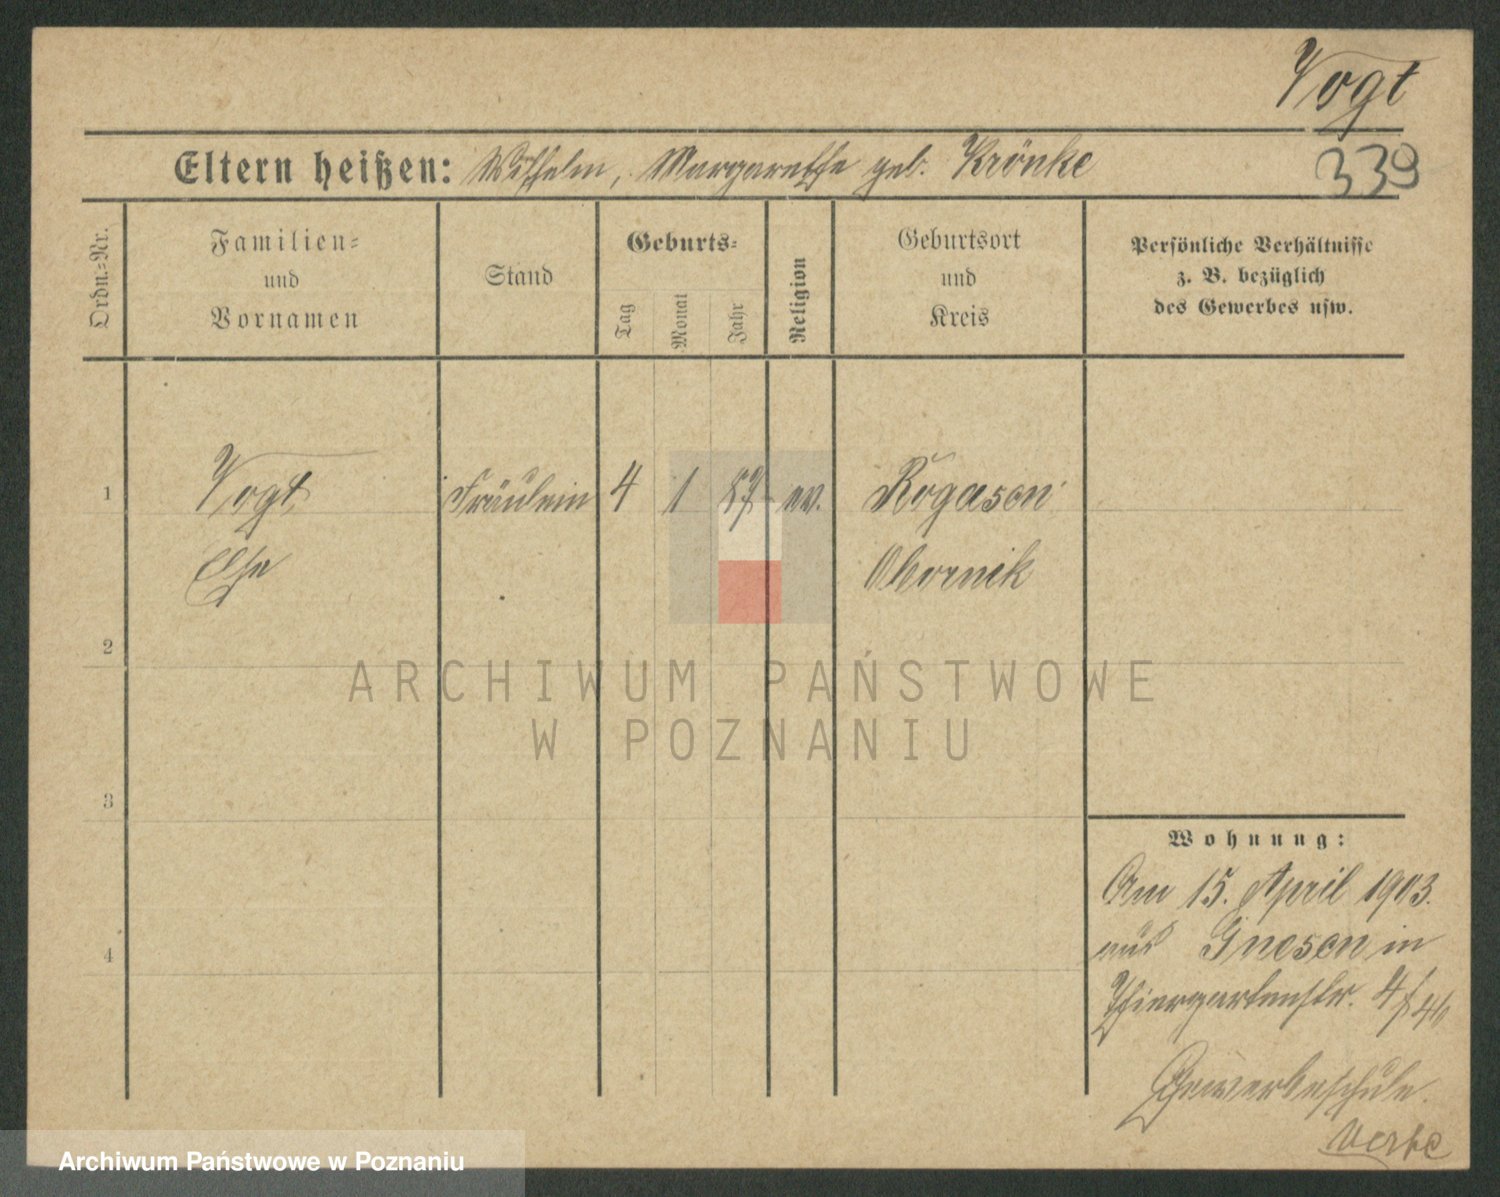 Vogt
Eltern heißen: Wilhelm, Margarethe geb. Krönke
339
Ordn.=Nr.
Familien=
und
Vornamen
Stand
Geburts=
Tag
Monat
Jahr
Religion
Geburtsort
und
Kreis
Persönliche Verhältnisse
z. B. bezüglich
des Gewerbes usw.
1
Vogt Fräulein 4 1 87 ev. Rogasen
Else Obornik
2
ARCHIWUM PAŃSTWOWE
W POZNANIU
3
4
Wohnung:
Am 15. April 1903.
aus Gnesen in
Thiergartenstr. 4
Gewerbeschule.
Archiwum Państwowe w Poznaniu